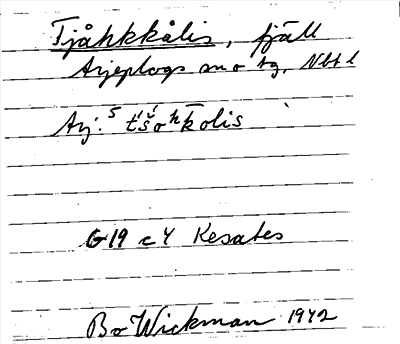 Tjåhkkålis, fjäll
Arjeplogs sn o tg, Nbt l
Arj. ⁵ t́š́oʰk̄olis
G19 c4 Kesates
Bo Wickman 1942